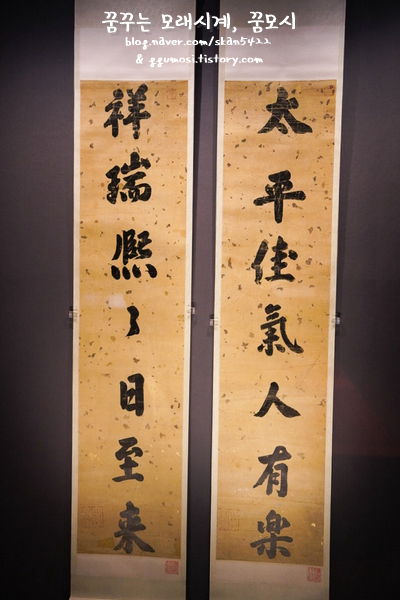 꿈꾸는 모래시계, 꿈모시
blog.naver.com/skan5422
& ggumosi.tistory.com
太平佳氣人有楽
祥瑞熙〻日至来